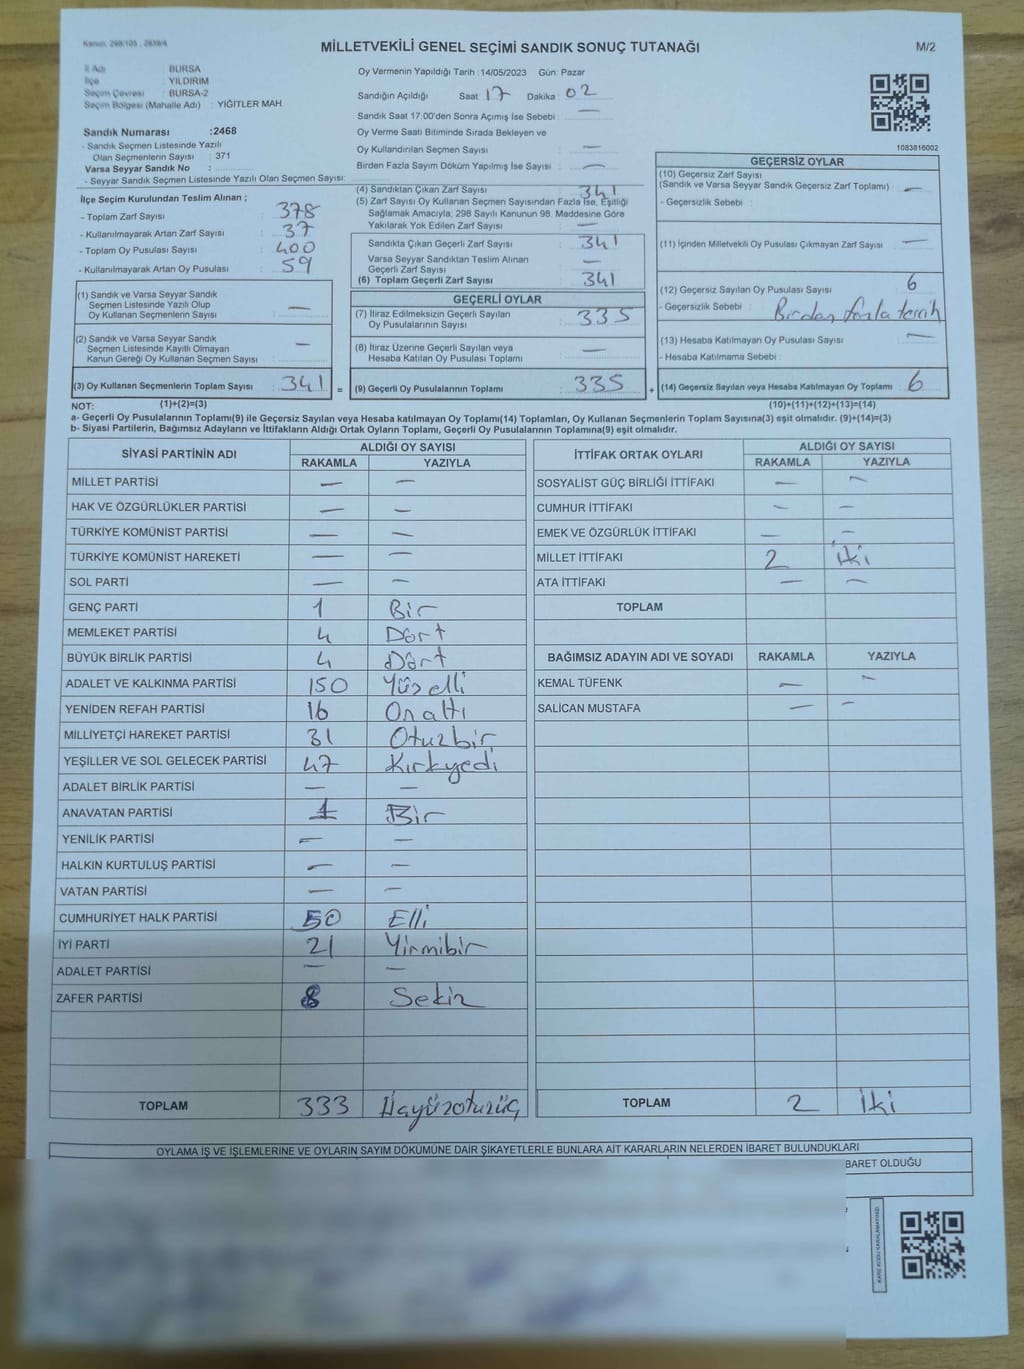 Kanun: 298/105 , 2839/4
MİLLETVEKİLİ GENEL SEÇİMİ SANDIK SONUÇ TUTANAĞI
M/2
İl Adı : BURSA
İlçe : YILDIRIM
Seçim Çevresi : BURSA-2
Seçim Bölgesi (Mahalle Adı) : YİĞİTLER MAH.
Sandık Numarası :2468
- Sandık Seçmen Listesinde Yazılı
Olan Seçmenlerin Sayısı : 371
Varsa Seyyar Sandık No :
- Seyyar Sandık Seçmen Listesinde Yazılı Olan Seçmen Sayısı:
Oy Vermenin Yapıldığı Tarih :14/05/2023 Gün: Pazar
Sandığın Açıldığı Saat : 17 Dakika : 02
Sandık Saat 17:00'den Sonra Açımış İse Sebebi : —
Oy Verme Saati Bitiminde Sırada Bekleyen ve
Oy Kullandırılan Seçmen Sayısı : —
Birden Fazla Sayım Döküm Yapılmış İse Sayısı : —
1083816002
İlçe Seçim Kurulundan Teslim Alınan ;
- Toplam Zarf Sayısı : 378
- Kullanılmayarak Artan Zarf Sayısı : 37
- Toplam Oy Pusulası Sayısı : 400
- Kullanılmayarak Artan Oy Pusulası : 59
(1) Sandık ve Varsa Seyyar Sandık
Seçmen Listesinde Yazılı Olup
Oy Kullanan Seçmenlerin Sayısı : —
(2) Sandık ve Varsa Seyyar Sandık
Seçmen Listesinde Kayıtlı Olmayan
Kanun Gereği Oy Kullanan Seçmen Sayısı : —
(3) Oy Kullanan Seçmenlerin Toplam Sayısı : 341
(4) Sandıktan Çıkan Zarf Sayısı : 341
(5) Zarf Sayısı Oy Kullanan Seçmen Sayısından Fazla İse, Eşitliği
Sağlamak Amacıyla, 298 Sayılı Kanunun 98. Maddesine Göre
Yakılarak Yok Edilen Zarf Sayısı : —
Sandıkta Çıkan Geçerli Zarf Sayısı : 341
Varsa Seyyar Sandıktan Teslim Alınan
Geçerli Zarf Sayısı : —
(6) Toplam Geçerli Zarf Sayısı : 341
GEÇERLİ OYLAR
(7) İtiraz Edilmeksizin Geçerli Sayılan
Oy Pusulalarının Sayısı : 335
(8) İtiraz Üzerine Geçerli Sayılan veya
Hesaba Katılan Oy Pusulası Toplamı : —
= (9) Geçerli Oy Pusulalarının Toplamı : 335
GEÇERSİZ OYLAR
(10) Geçersiz Zarf Sayısı
(Sandık ve Varsa Seyyar Sandık Geçersiz Zarf Toplamı) : —
- Geçersizlik Sebebi :
(11) İçinden Milletvekili Oy Pusulası Çıkmayan Zarf Sayısı : —
(12) Geçersiz Sayılan Oy Pusulası Sayısı : 6
- Geçersizlik Sebebi : Birden fazla tercih
(13) Hesaba Katılmayan Oy Pusulası Sayısı : —
- Hesaba Katılmama Sebebi :
+ (14) Geçersiz Sayılan veya Hesaba Katılmayan Oy Toplamı : 6
NOT: (1)+(2)=(3)
(10)+(11)+(12)+(13)=(14)
a- Geçerli Oy Pusulalarının Toplamı(9) ile Geçersiz Sayılan veya Hesaba katılmayan Oy Toplamı(14) Toplamları, Oy Kullanan Seçmenlerin Toplam Sayısına(3) eşit olmalıdır. (9)+(14)=(3)
b- Siyasi Partilerin, Bağımsız Adayların ve İttifakların Aldığı Ortak Oyların Toplamı, Geçerli Oy Pusulalarının Toplamına(9) eşit olmalıdır.
SİYASİ PARTİNİN ADI ALDIĞI OY SAYISI
RAKAMLA YAZIYLA
MİLLET PARTİSİ — —
HAK VE ÖZGÜRLÜKLER PARTİSİ — —
TÜRKİYE KOMÜNİST PARTİSİ — —
TÜRKİYE KOMÜNİST HAREKETİ — —
SOL PARTİ — —
GENÇ PARTİ 1 Bir
MEMLEKET PARTİSİ 4 Dört
BÜYÜK BİRLİK PARTİSİ 4 Dört
ADALET VE KALKINMA PARTİSİ 150 Yüzelli
YENİDEN REFAH PARTİSİ 16 Onaltı
MİLLİYETÇİ HAREKET PARTİSİ 31 Otuzbir
YEŞİLLER VE SOL GELECEK PARTİSİ 47 Kırkyedi
ADALET BİRLİK PARTİSİ — —
ANAVATAN PARTİSİ 1 Bir
YENİLİK PARTİSİ — —
HALKIN KURTULUŞ PARTİSİ — —
VATAN PARTİSİ — —
CUMHURİYET HALK PARTİSİ 50 Elli
İYİ PARTİ 21 Yirmibir
ADALET PARTİSİ — —
ZAFER PARTİSİ 8 Sekiz
TOPLAM 333 Üçyüzotuzüç
İTTİFAK ORTAK OYLARI ALDIĞI OY SAYISI
RAKAMLA YAZIYLA
SOSYALİST GÜÇ BİRLİĞİ İTTİFAKI — —
CUMHUR İTTİFAKI — —
EMEK VE ÖZGÜRLÜK İTTİFAKI — —
MİLLET İTTİFAKI 2 İki
ATA İTTİFAKI — —
TOPLAM
BAĞIMSIZ ADAYIN ADI VE SOYADI RAKAMLA YAZIYLA
KEMAL TÜFENK — —
SALİCAN MUSTAFA — —
TOPLAM 2 İki
OYLAMA İŞ VE İŞLEMLERİNE VE OYLARIN SAYIM DÖKÜMÜNE DAİR ŞİKAYETLERLE BUNLARA AİT KARARLARIN NELERDEN İBARET BULUNDUKLARI
BARET OLDUĞU